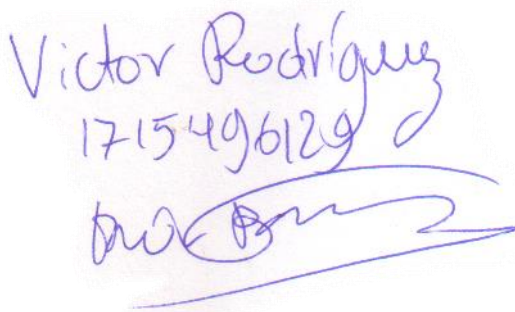 Victor Rodríguez
1715496129